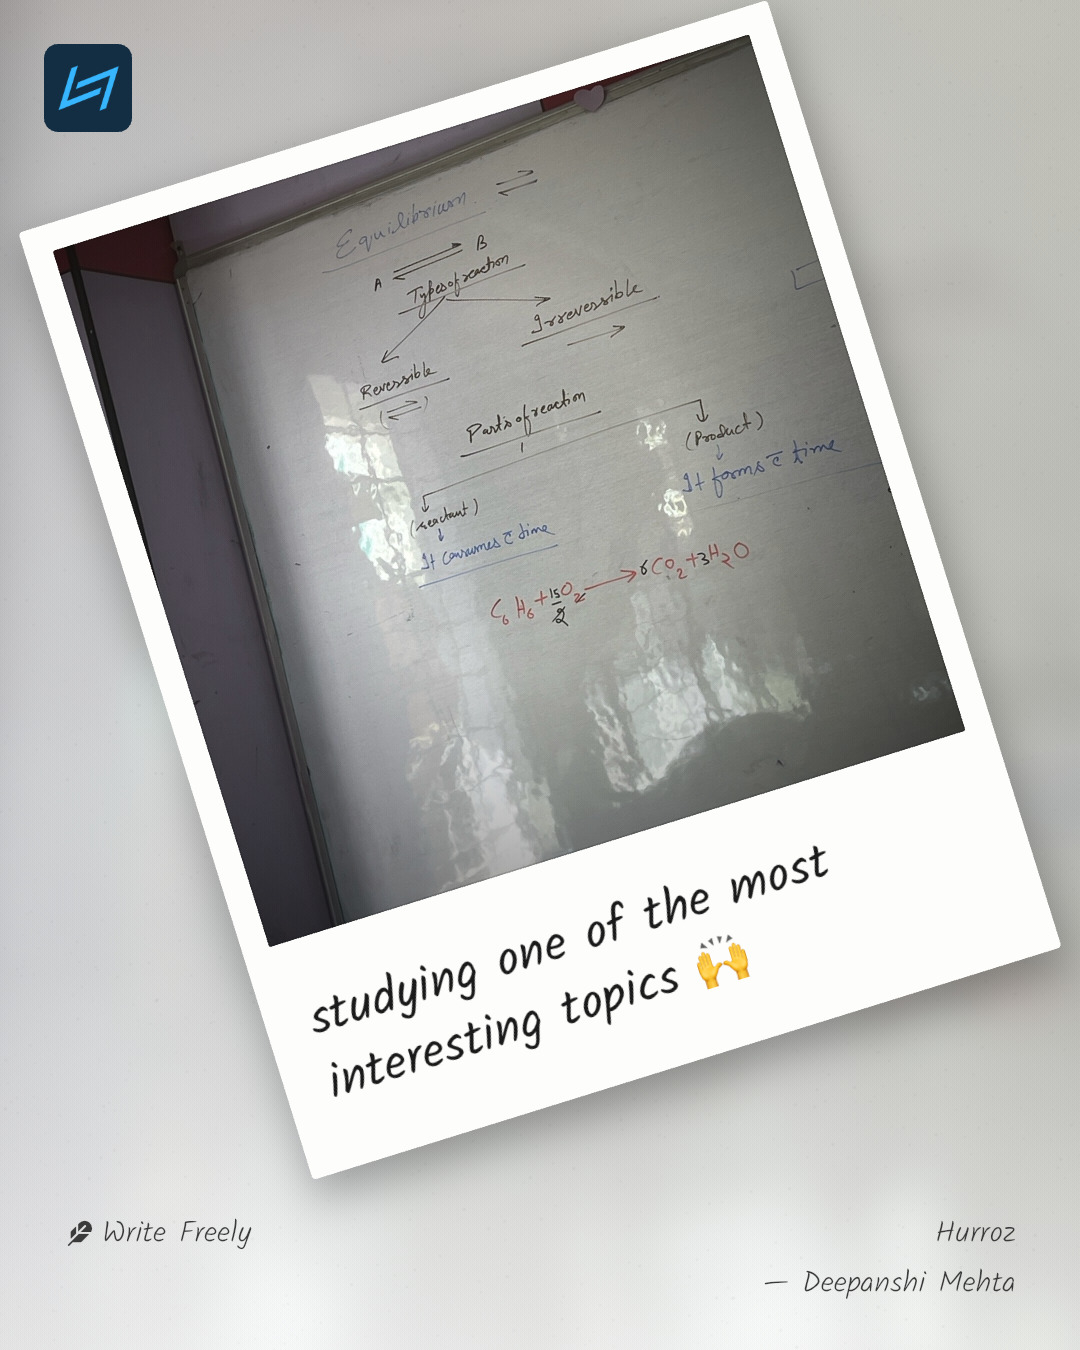 Equilibrium ⇌
A ⇌ B
Types of reaction
Irreversible
→
Reversible
(⇌)
Parts of reaction
(Product)
↓
It forms c̄ time
(reactant)
↓
It consumes c̄ time
C₆H₆ + 15/2 O₂ → 6CO₂ + 3H₂O
studying one of the most
interesting topics 🙌
Write Freely
Hurroz
— Deepanshi Mehta